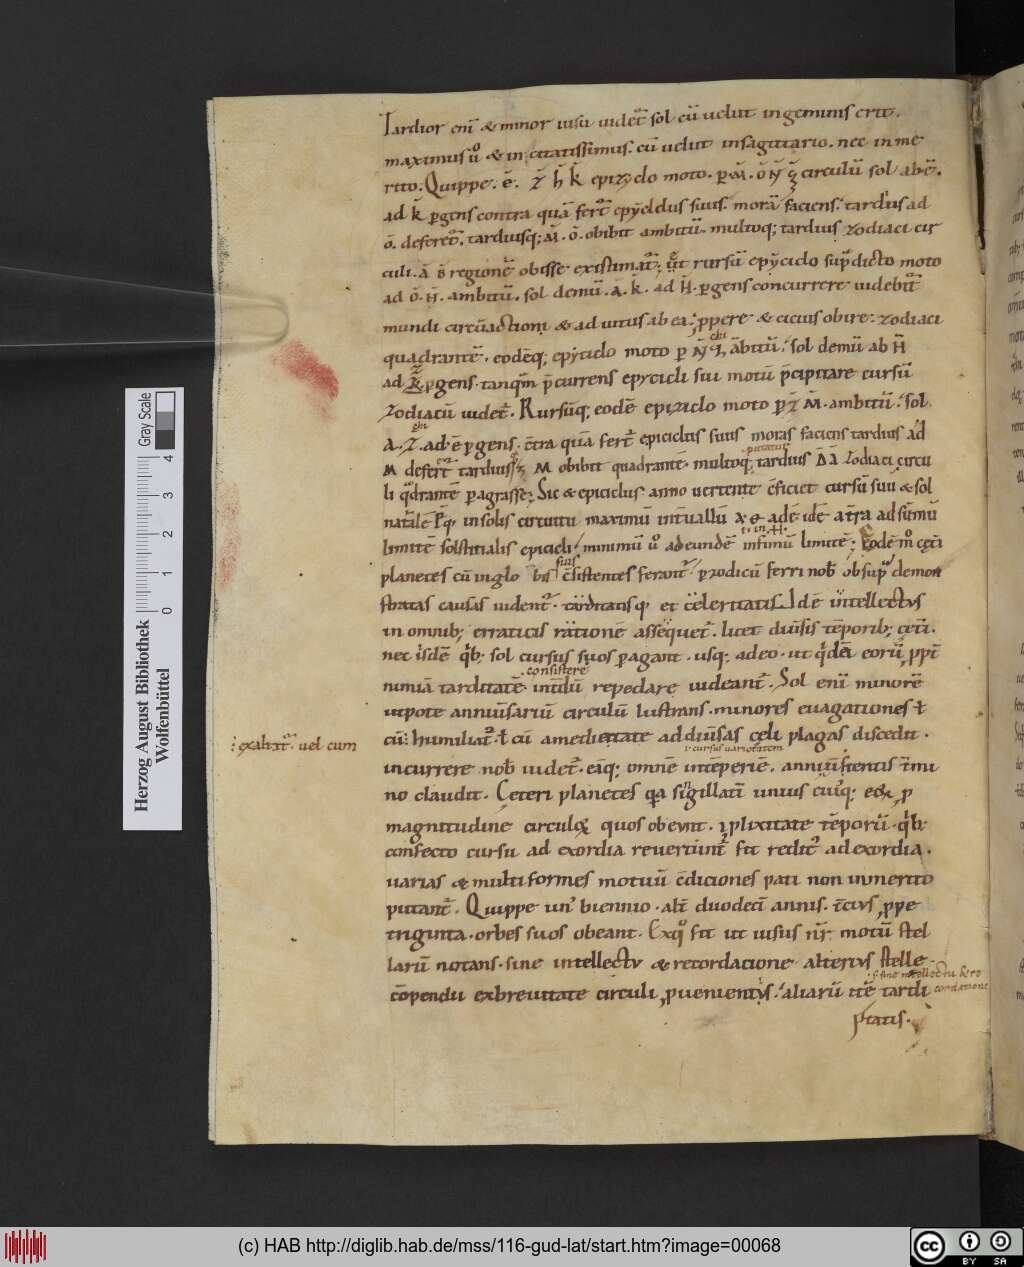 Tardior eni᷑ & minor uisu uidet᷑ sol cu᷑ uelut in geminis erit.
maximus u᷑o & incitatissimus. cu᷑ uelut in sagittario. nec in me
rito. Quippe. e᷑. epiziclo moto. circulu᷑ sol abe᷑.
ad k p̱gens contra qua᷑ fert᷑ epyciclus suus. mora᷑ faciens. tardius ad
o. deferet᷑. tardiusq; M. o. obibit ambitu᷑. multoq; tardius zodiaci cir
culi. regione᷑ obisse existimat᷑. rursu᷑ epyciclo sup᷑dicto moto
ad o. H. ambitu᷑. sol demu᷑. a. k. ad H. p̱gens concurrere uidebit᷑
mundi circu᷑actioni & ad uitus ab ea. ꝓpere & cicius obire. zodiaci
quadrante᷑. eode᷑q; epyciclo moto p̱ a᷑bitu᷑. sol demu᷑ ab H
ad k p̱gens. tanqua᷑ p᷑currens epycicli sui motu᷑ p᷑cipitare cursu᷑
zodiacu᷑ uidet᷑. Rursu᷑q; eode᷑ epiziclo moto p̱ z M. ambitu᷑. sol
a. z. ad e p̱gens. c᷑tra qua᷑ fert᷑ epiciclus suus moras faciens tardius ad
putatur
M defert᷑ tardiusq; M obibit quadrante᷑. multoq; tardius zodiaci circu
li q᷑drante᷑ p̱agrasse. Sic & epiciclus anno uertente c᷑ficiet cursu᷑ suu᷑ & sol
in solis circuitu maximu᷑ int᷑uallu᷑ ad su᷑mu᷑
limite᷑ solstitialis epicicli. minimu᷑ u᷑o ad eunde᷑ infimu᷑ limite᷑. Eode᷑ m᷑o cet᷑i
suis
planetes cu᷑ in glo bis c᷑sistentes ferant᷑. p̱ zodicu᷑ ferri nob᷑ ob sup᷑ demon
stratas causas uident᷑. tarditatisq; et celeritatis. Ide᷑ intellectus
in omnib; erraticis ratione᷑ asseq̱uet᷑. licet diu᷑sis te᷑porib; cet᷑i.
nec isde᷑ q᷑b; sol cursus suos p̱agant. usq; adeo. ut q᷑da᷑ eoru᷑ ꝓpt᷑
consistere
nimia᷑ tarditate᷑. int᷑du᷑ repedare uideant᷑. Sol eni᷑ minore᷑
utpote anniu᷑sariu᷑ circulu᷑ lustrans. minores euagationes ł
: exaltat᷑. uel cum
cu᷑: humiliat᷑. ł cu᷑ a medietate ad diu᷑sas celi plagas discedit.
ł cursus uarietatem
incurrere nob᷑ uidet᷑. ea᷑q; omne᷑ inte᷑perie᷑. anniu᷑sientis t᷑mi
no claudit. Ceteri planetes q̱a singillati᷑ unius cuiusq; eox ꝓ
magnitudine circulox quos obeunt. ꝓlixitate te᷑poru᷑. q᷑b;
confecto cursu ad exordia reuertunt᷑ fit redit᷑ ad exordia.
uarias & multiformes motuu᷑ c᷑diciones pati non inmerito
putant᷑. Quippe un᷑ biennio. alt᷑ duodeci᷑ annis. t᷑cius ꝓpe
triginta. orbes suos obeant. Exq᷑o fit ut uisus nr᷑. motu᷑ stel
laru᷑ notans. sine intellectu & recordacione alterius stelle
ł sine intellectu & re
cordatione
co᷑pendii ex breuitate circuli ꝓuenientis. aliaru᷑ tardi
tatis.
Herzog August Bibliothek
Wolfenbüttel
Gray Scale
0 1 2 3 4
(c) HAB http://diglib.hab.de/mss/116-gud-lat/start.htm?image=00068
cc BY SA